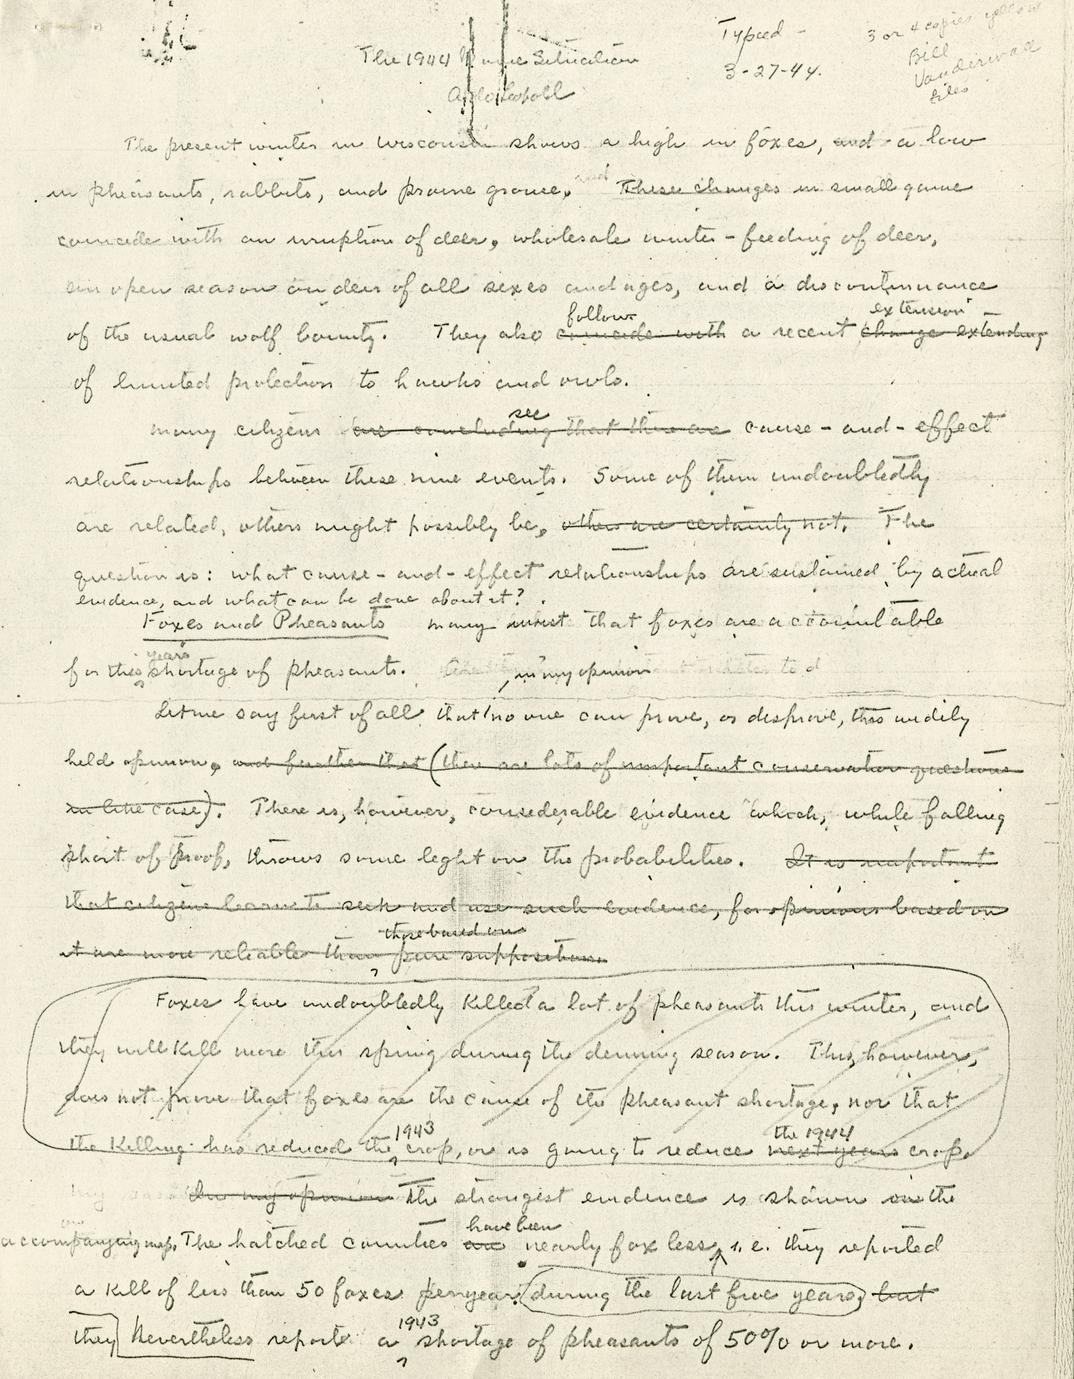 Typed -
3-27-44.
3 or 4 copies yellow
Bill
Vanderwall
files
The 1944 Game Situation
Aldo Leopold
The present winter in Wisconsin shows a high in foxes, and a low
in pheasants, rabbits, and prairie grouse. and These changes in small game
coincide with an irruption of deer, wholesale winter-feeding of deer,
an open season on deer of all sexes and ages, and a discontinuance
follow extension
of the usual wolf bounty. They also coincide with a recent change extending
of limited protection to hawks and owls.
see
Many citizens are concluding that there are cause-and-effect
relationships between these nine events. Some of them undoubtedly
are related, others might possibly be, others are certainly not. The
question is: what cause-and-effect relationships are sustained by actual
evidence, and what can be done about it?
Foxes and Pheasants many insist that foxes are accountable
year's
for this shortage of pheasants.
, in my opinion
Let me say first of all that no one can prove, or disprove, this widely
held opinion, and further that (there are lots of important conservation questions
in like case). There is, however, considerable evidence which, while falling
short of proof, throws some light on the probabilities. It is important
that citizens learn to seek and use such evidence, for opinions based on
those based on
it are more reliable than pure suppositions.
Foxes have undoubtedly killed a lot of pheasants this winter, and
they will kill more this spring during the denning season. This, however,
does not prove that foxes are the cause of the pheasant shortage, nor that
1943 the 1944
the killing has reduced the crop, or is going to reduce next years crop.
In my opinion The strongest evidence is shown in the
have been
accompanying map. The hatched counties are nearly fox less, i.e. they reported
a kill of less than 50 foxes per year during the last five years, but
1943
they Nevertheless report a shortage of pheasants of 50% or more.